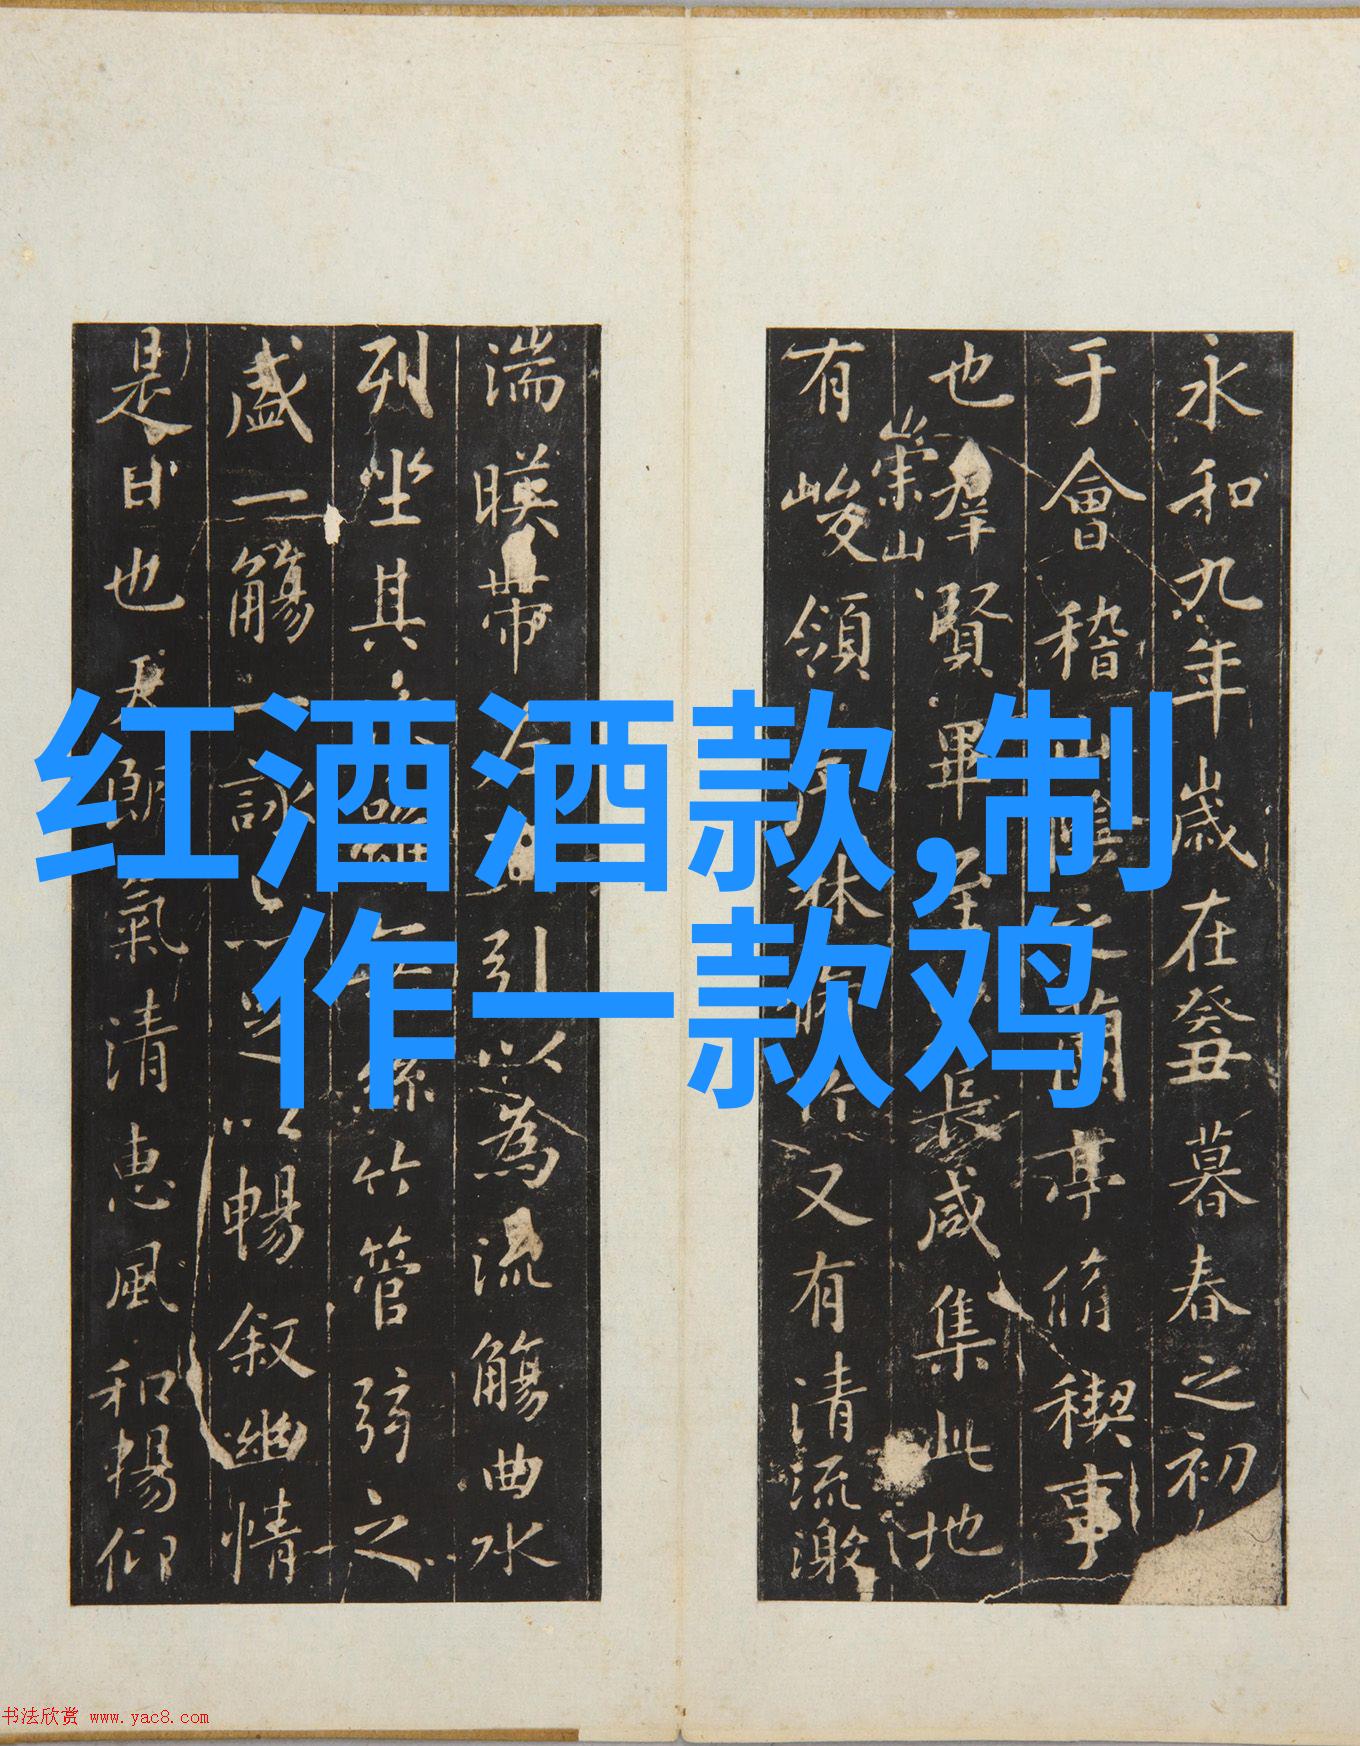 红酒酒款,制
作一款鸡
永和九年歲在癸丑暮春之初
于會稽山陰之蘭亭脩禊事
也羣賢畢至長咸集此地
崇山
有峻領林脩竹又有清流激
湍暎帶左引以為流觴曲水
列坐其雖絲竹管弦之
盛一觴一詠以暢叙幽情
是日也天朗氣清惠風和暢仰
书法欣赏 www.yac8.com